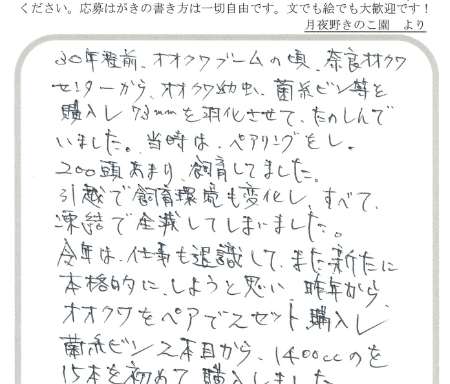 ください。応募はがきの書き方は一切自由です。文でも絵でも大歓迎です！
月夜野きのこ園　より
30年程前、オオクワブームの頃、奈良オオクワ
センターから、オオクワ幼虫、菌糸ビン等を
購入し73mmを羽化させて、たのしんで
いました。当時は、ペアリングをし、
200頭あまり、飼育してました。
引越で飼育環境も変化し、すべて、
凍結で全滅してしまいました。
今年は、仕事も退識して、また新たに
本格的に、しようと思い 昨年から、
オオクワをペアで2セット購入し
菌糸ビン2本目から、1400ccのを
15本を初めて購入しました